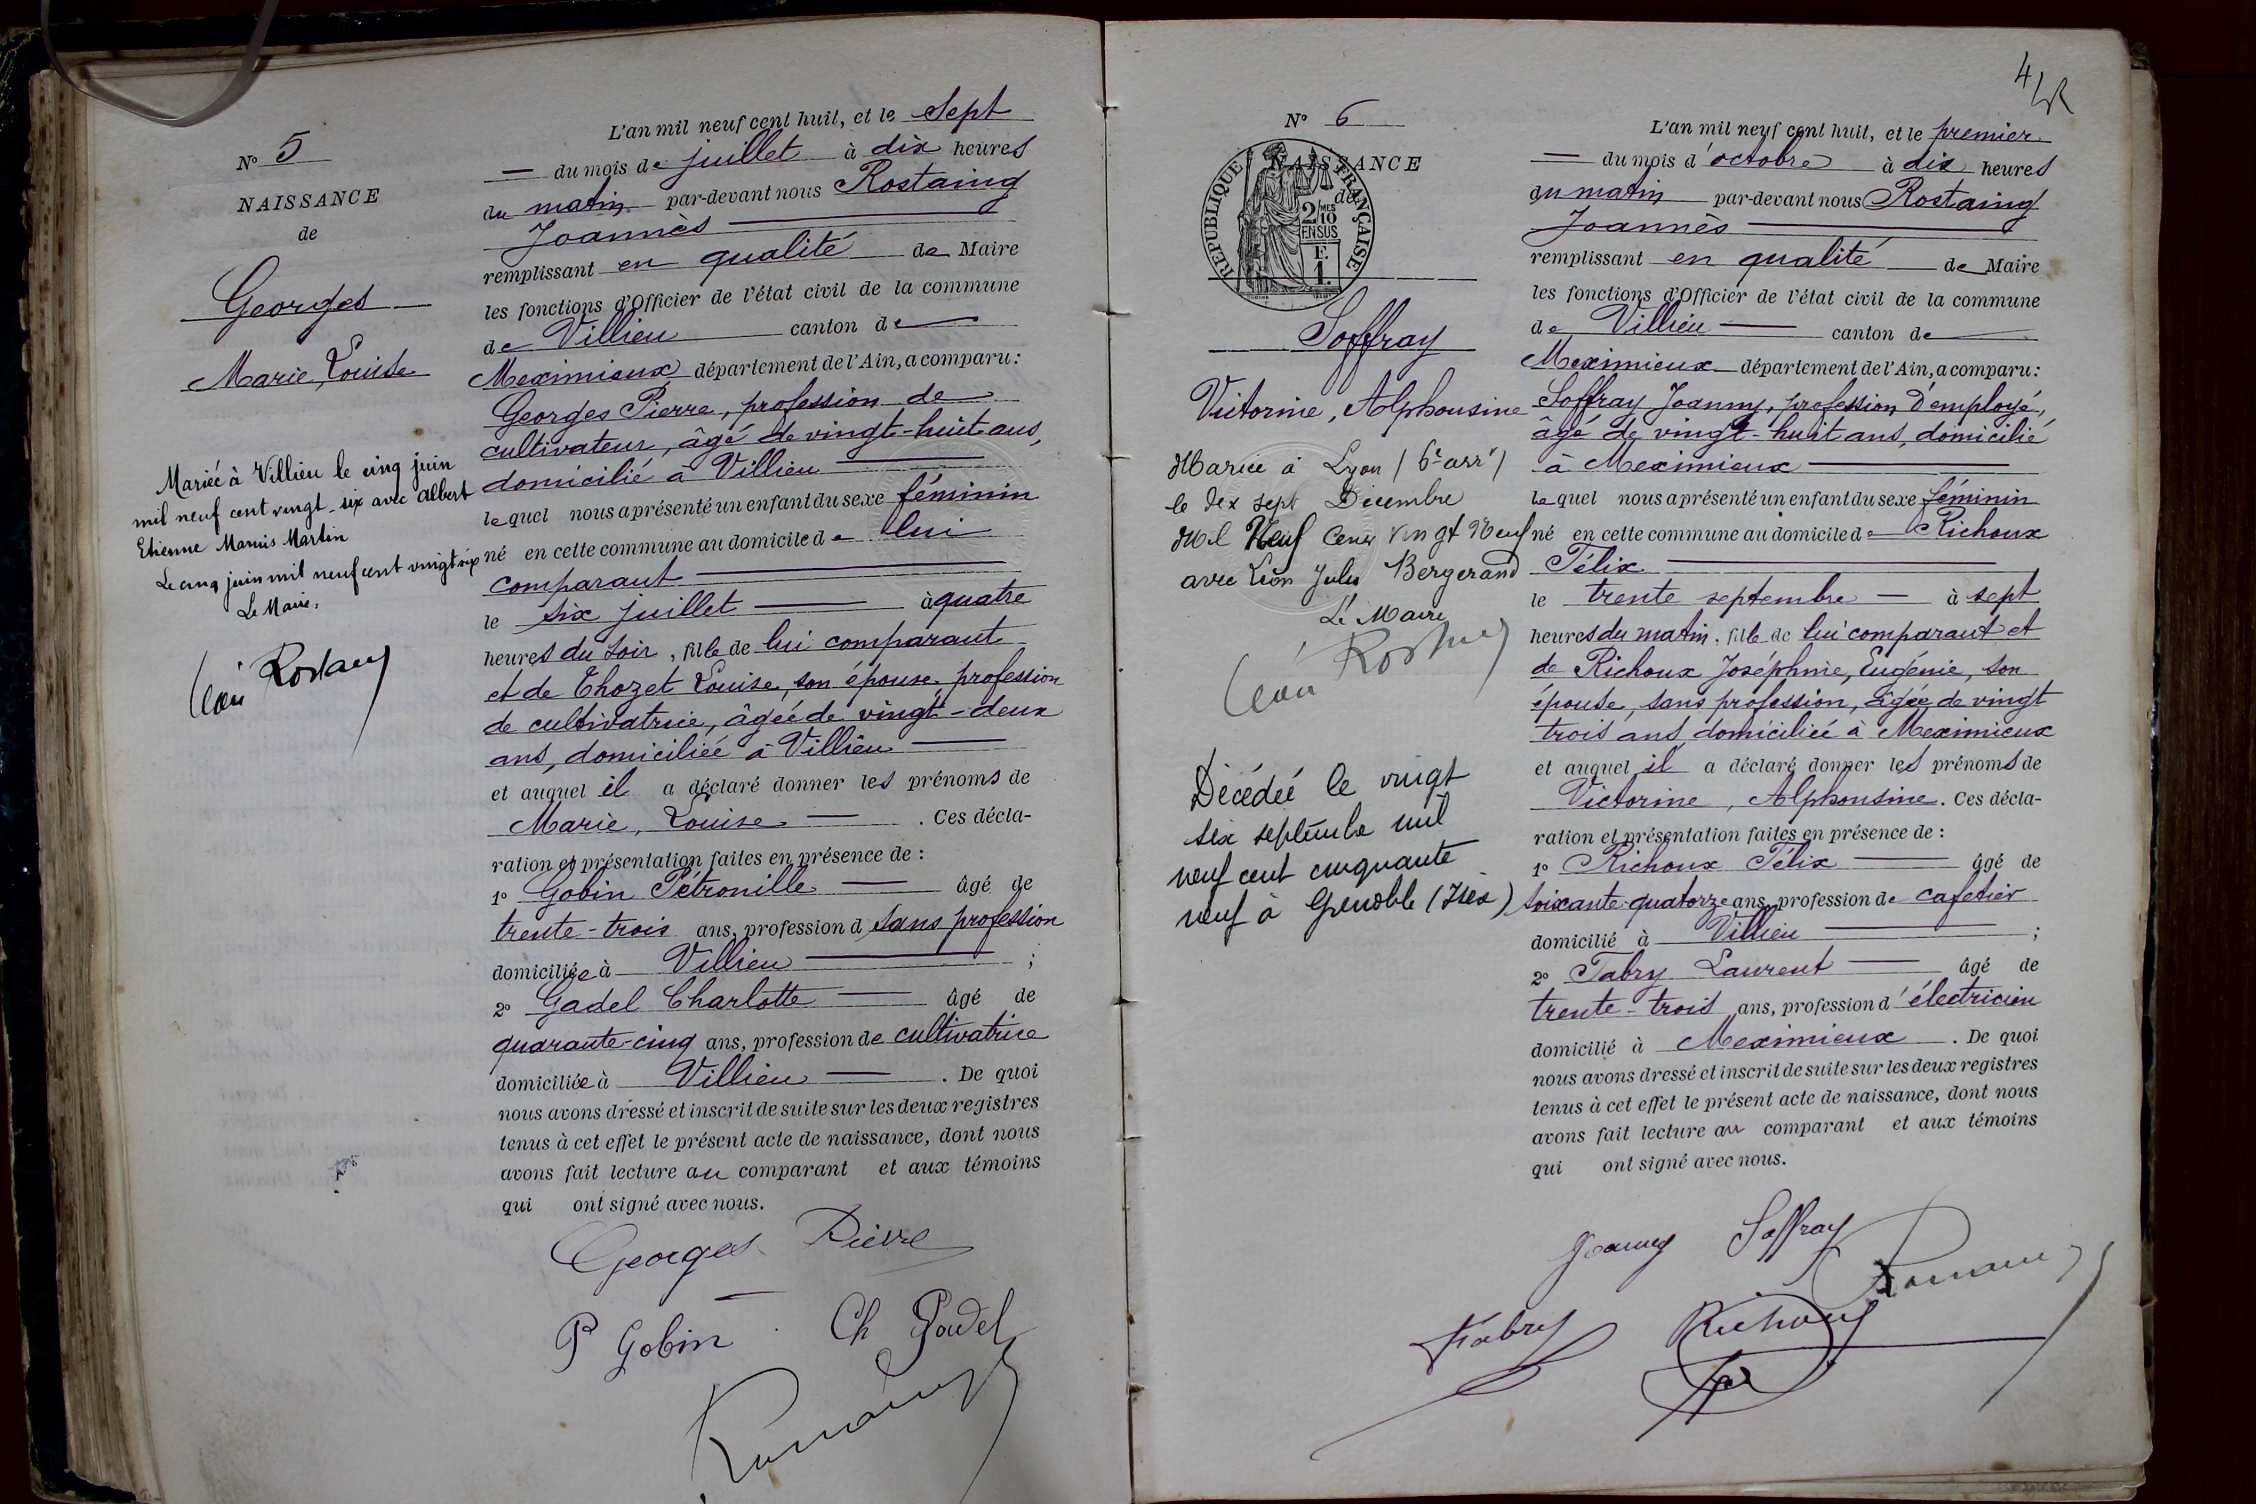 N° 5
NAISSANCE
de
Georges
Marie, Louise
Mariée à Villieu le cinq juin
mil neuf cent vingt-six avec Albert
Etienne Marius Martin
Le cinq juin mil neuf cent vingt six
Le Maire,
L'an mil neuf cent huit, et le sept
du mois de juillet à dix heures
du matin par-devant nous Rostaing
Joannès
remplissant en qualité de Maire
les fonctions d'Officier de l'état civil de la commune
de Villieu canton de
Meximieux département de l'Ain, a comparu:
Georges Pierre, profession de
cultivateur, âgé de vingt-huit ans,
domicilié à Villieu
lequel nous a présenté un enfant du sexe féminin
né en cette commune au domicile de lui
comparant
le six juillet à quatre
heures du soir, fille de lui comparant
et de Thozet Louise, son épouse, profession
de cultivatrice, âgée de vingt-deux
ans, domiciliée à Villieu
et auquel il a déclaré donner les prénoms de
Marie, Louise . Ces décla-
ration et présentation faites en présence de :
1° Gobin Pétronille âgé de
trente-trois ans, profession d sans profession
domiciliée à Villieu ;
2° Gadel Charlotte âgé de
quarante-cinq ans, profession de cultivatrice
domiciliée à Villieu . De quoi
nous avons dressé et inscrit de suite sur les deux registres
tenus à cet effet le présent acte de naissance, dont nous
avons fait lecture au comparant et aux témoins
qui ont signé avec nous.
Georges Pierre
P Gobin Ch Gadel
4
N° 6
NAISSANCE
de
REPUBLIQUE FRANÇAISE
2/10 MES
EN SUS
F.
1.
Soffray
Victorine, Alphonsine
Mariée à Lyon (6e arrt)
le dix sept Décembre
Mil Neuf Cent vingt Neuf
avec Léon Jules Bergerand
Le Maire
Décédée le vingt
six septembre mil
neuf cent cinquante
neuf à Grenoble (Isère)
L'an mil neuf cent huit, et le premier
du mois d'octobre à dix heures
du matin par-devant nous Rostaing
Joannès
remplissant en qualité de Maire
les fonctions d'Officier de l'état civil de la commune
de Villieu canton de
Meximieux département de l'Ain, a comparu:
Soffray Joanny, profession d'employé,
âgé de vingt-huit ans, domicilié
à Meximieux
lequel nous a présenté un enfant du sexe féminin
né en cette commune au domicile de Richoux
Félix
le trente septembre à sept
heures du matin, fille de lui comparant et
de Richoux Joséphine, Eugénie, son
épouse, sans profession, âgée de vingt
trois ans domiciliée à Meximieux
et auquel il a déclaré donner les prénoms de
Victorine, Alphonsine. Ces décla-
ration et présentation faites en présence de :
1° Richoux Félix âgé de
soixante-quatorze ans, profession de cafetier
domicilié à Villieu ;
2° Fabry Laurent âgé de
trente-trois ans, profession d'électricien
domicilié à Meximieux . De quoi
nous avons dressé et inscrit de suite sur les deux registres
tenus à cet effet le présent acte de naissance, dont nous
avons fait lecture au comparant et aux témoins
qui ont signé avec nous.
Joanny Soffray
Fabry Richoux